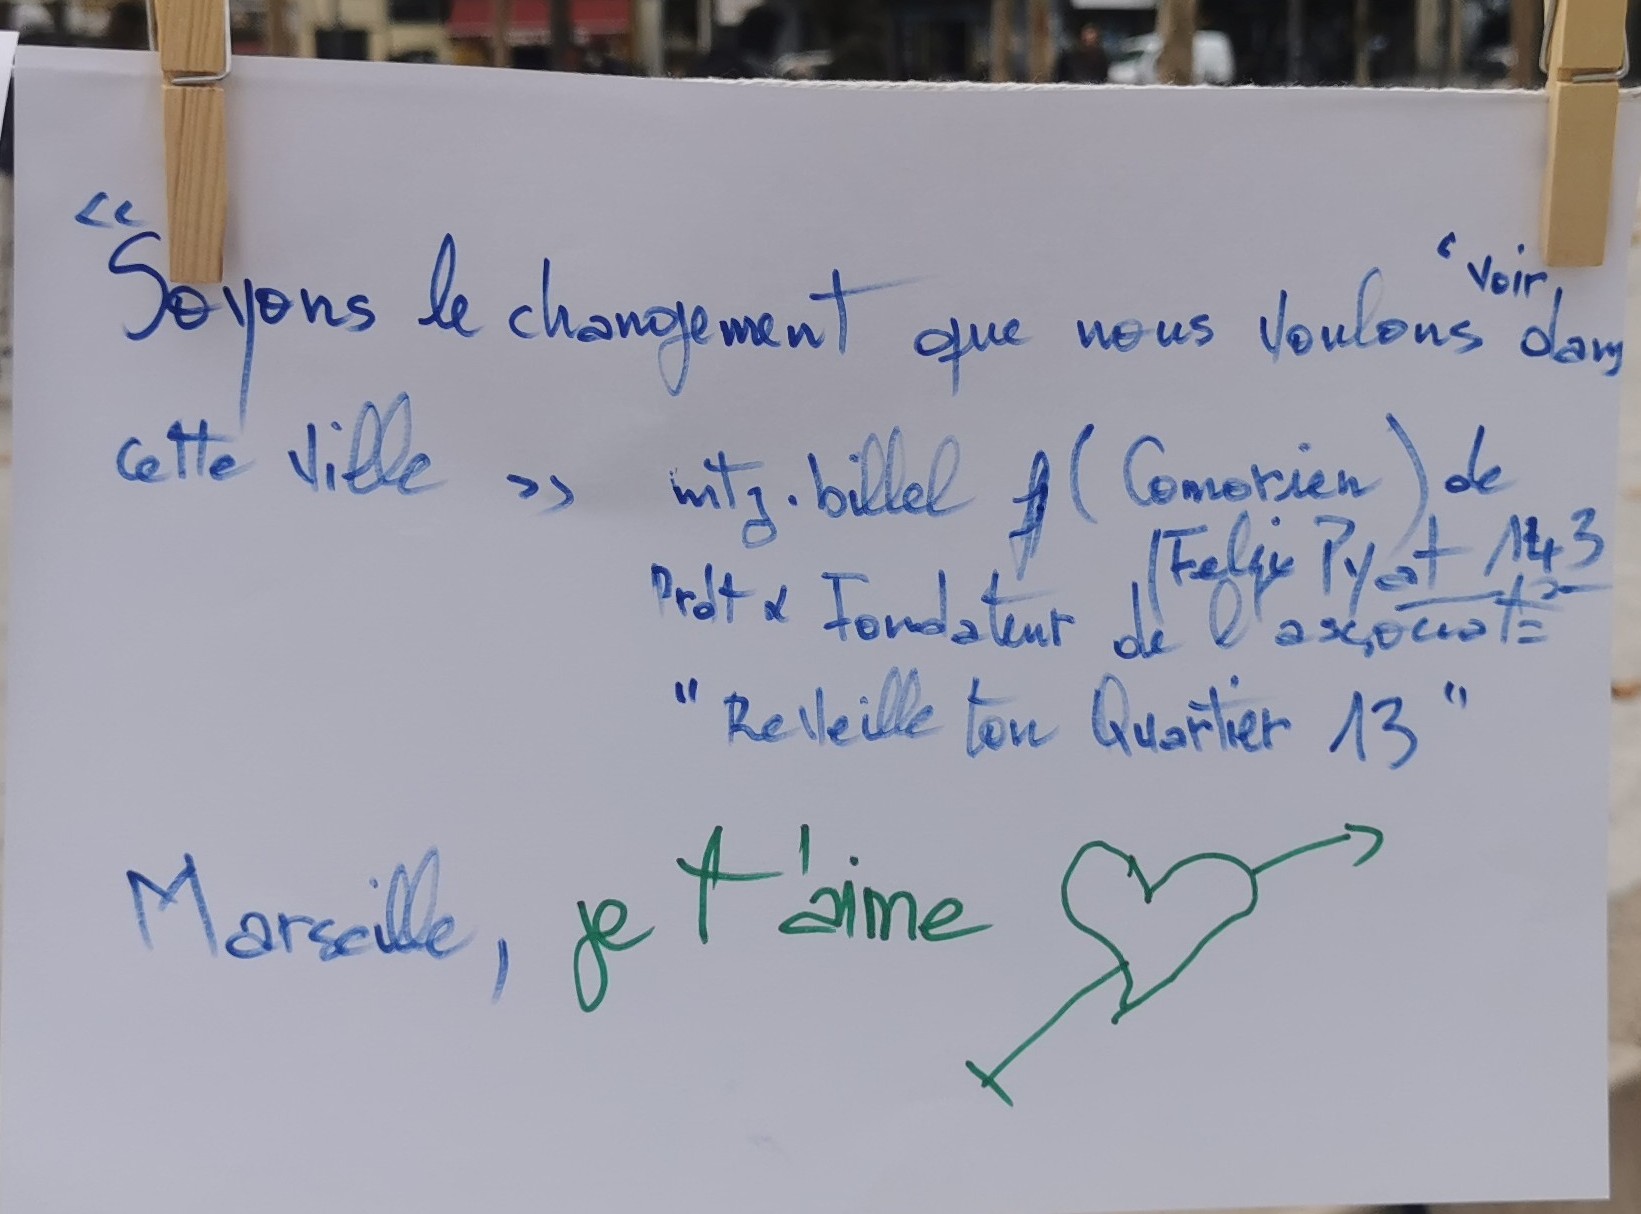 << Soyons le changement que nous voulons "voir" dans
cette ville >> mtz.billel (Comorien) de
Felix Pyat 143
Prdt & Fondateur de l'associat=
" Reveille ton Quartier 13 "
Marseille, je t'aime